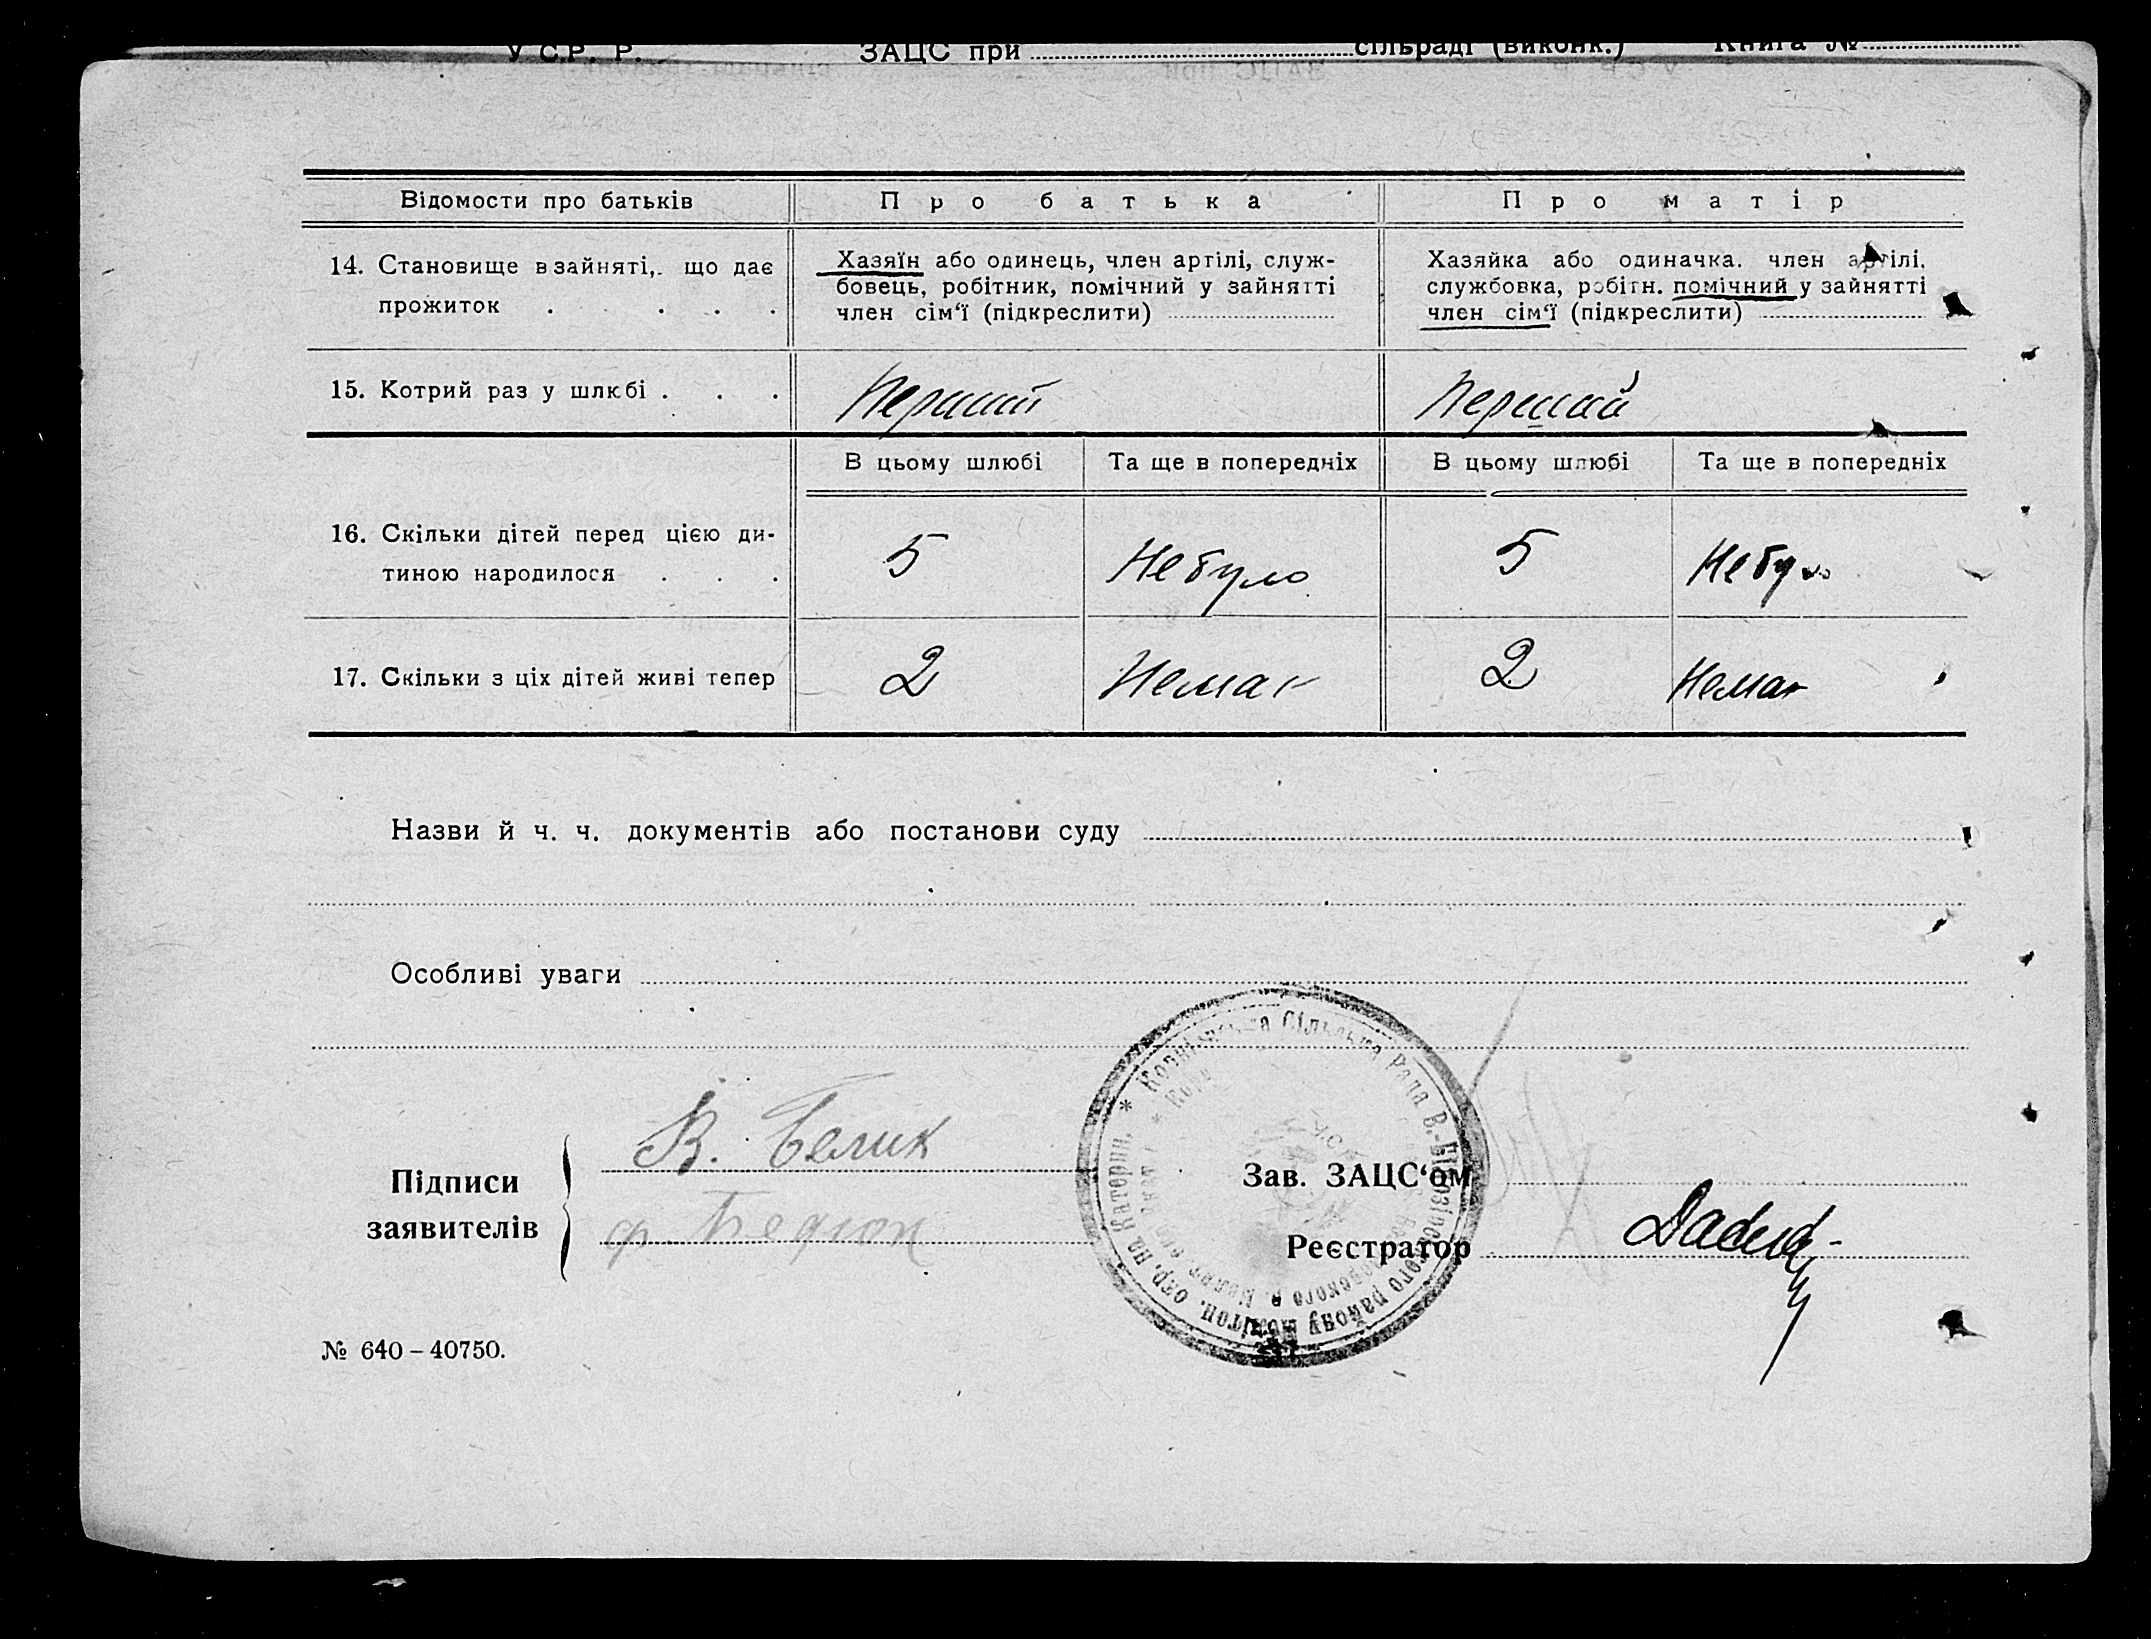 У.С.Р.Р. ЗАЦС при сільраді (виконк.) Книга №
Відомости про батьків Про батька Про матір
14. Становище в зайняті, що дає
прожиток
Хазяїн або одинець, член артілі, служ-
бовець, робітник, помічний у зайнятті
член сім‘ї (підкреслити)
Хазяйка або одиначка. член артілі,
службовка, робітн. помічний у зайнятті
член сім‘ї (підкреслити)
15. Котрий раз у шлюбі Перший Перший
В цьому шлюбі Та ще в попередніх В цьому шлюбі Та ще в попередніх
16. Скільки дітей перед цією ди-
тиною народилося
5 Небуло 5 Небуло
17. Скільки з ціх дітей живі тепер 2 Немає 2 Немає
Назви й ч. ч. документів або постанови суду
Особливі уваги
Підписи
заявителів
В. Белик
Зав. ЗАЦС‘ом
Реєстратор
Сільська Рада В.-
району
окр. на Катерин.
№ 640 – 40750.